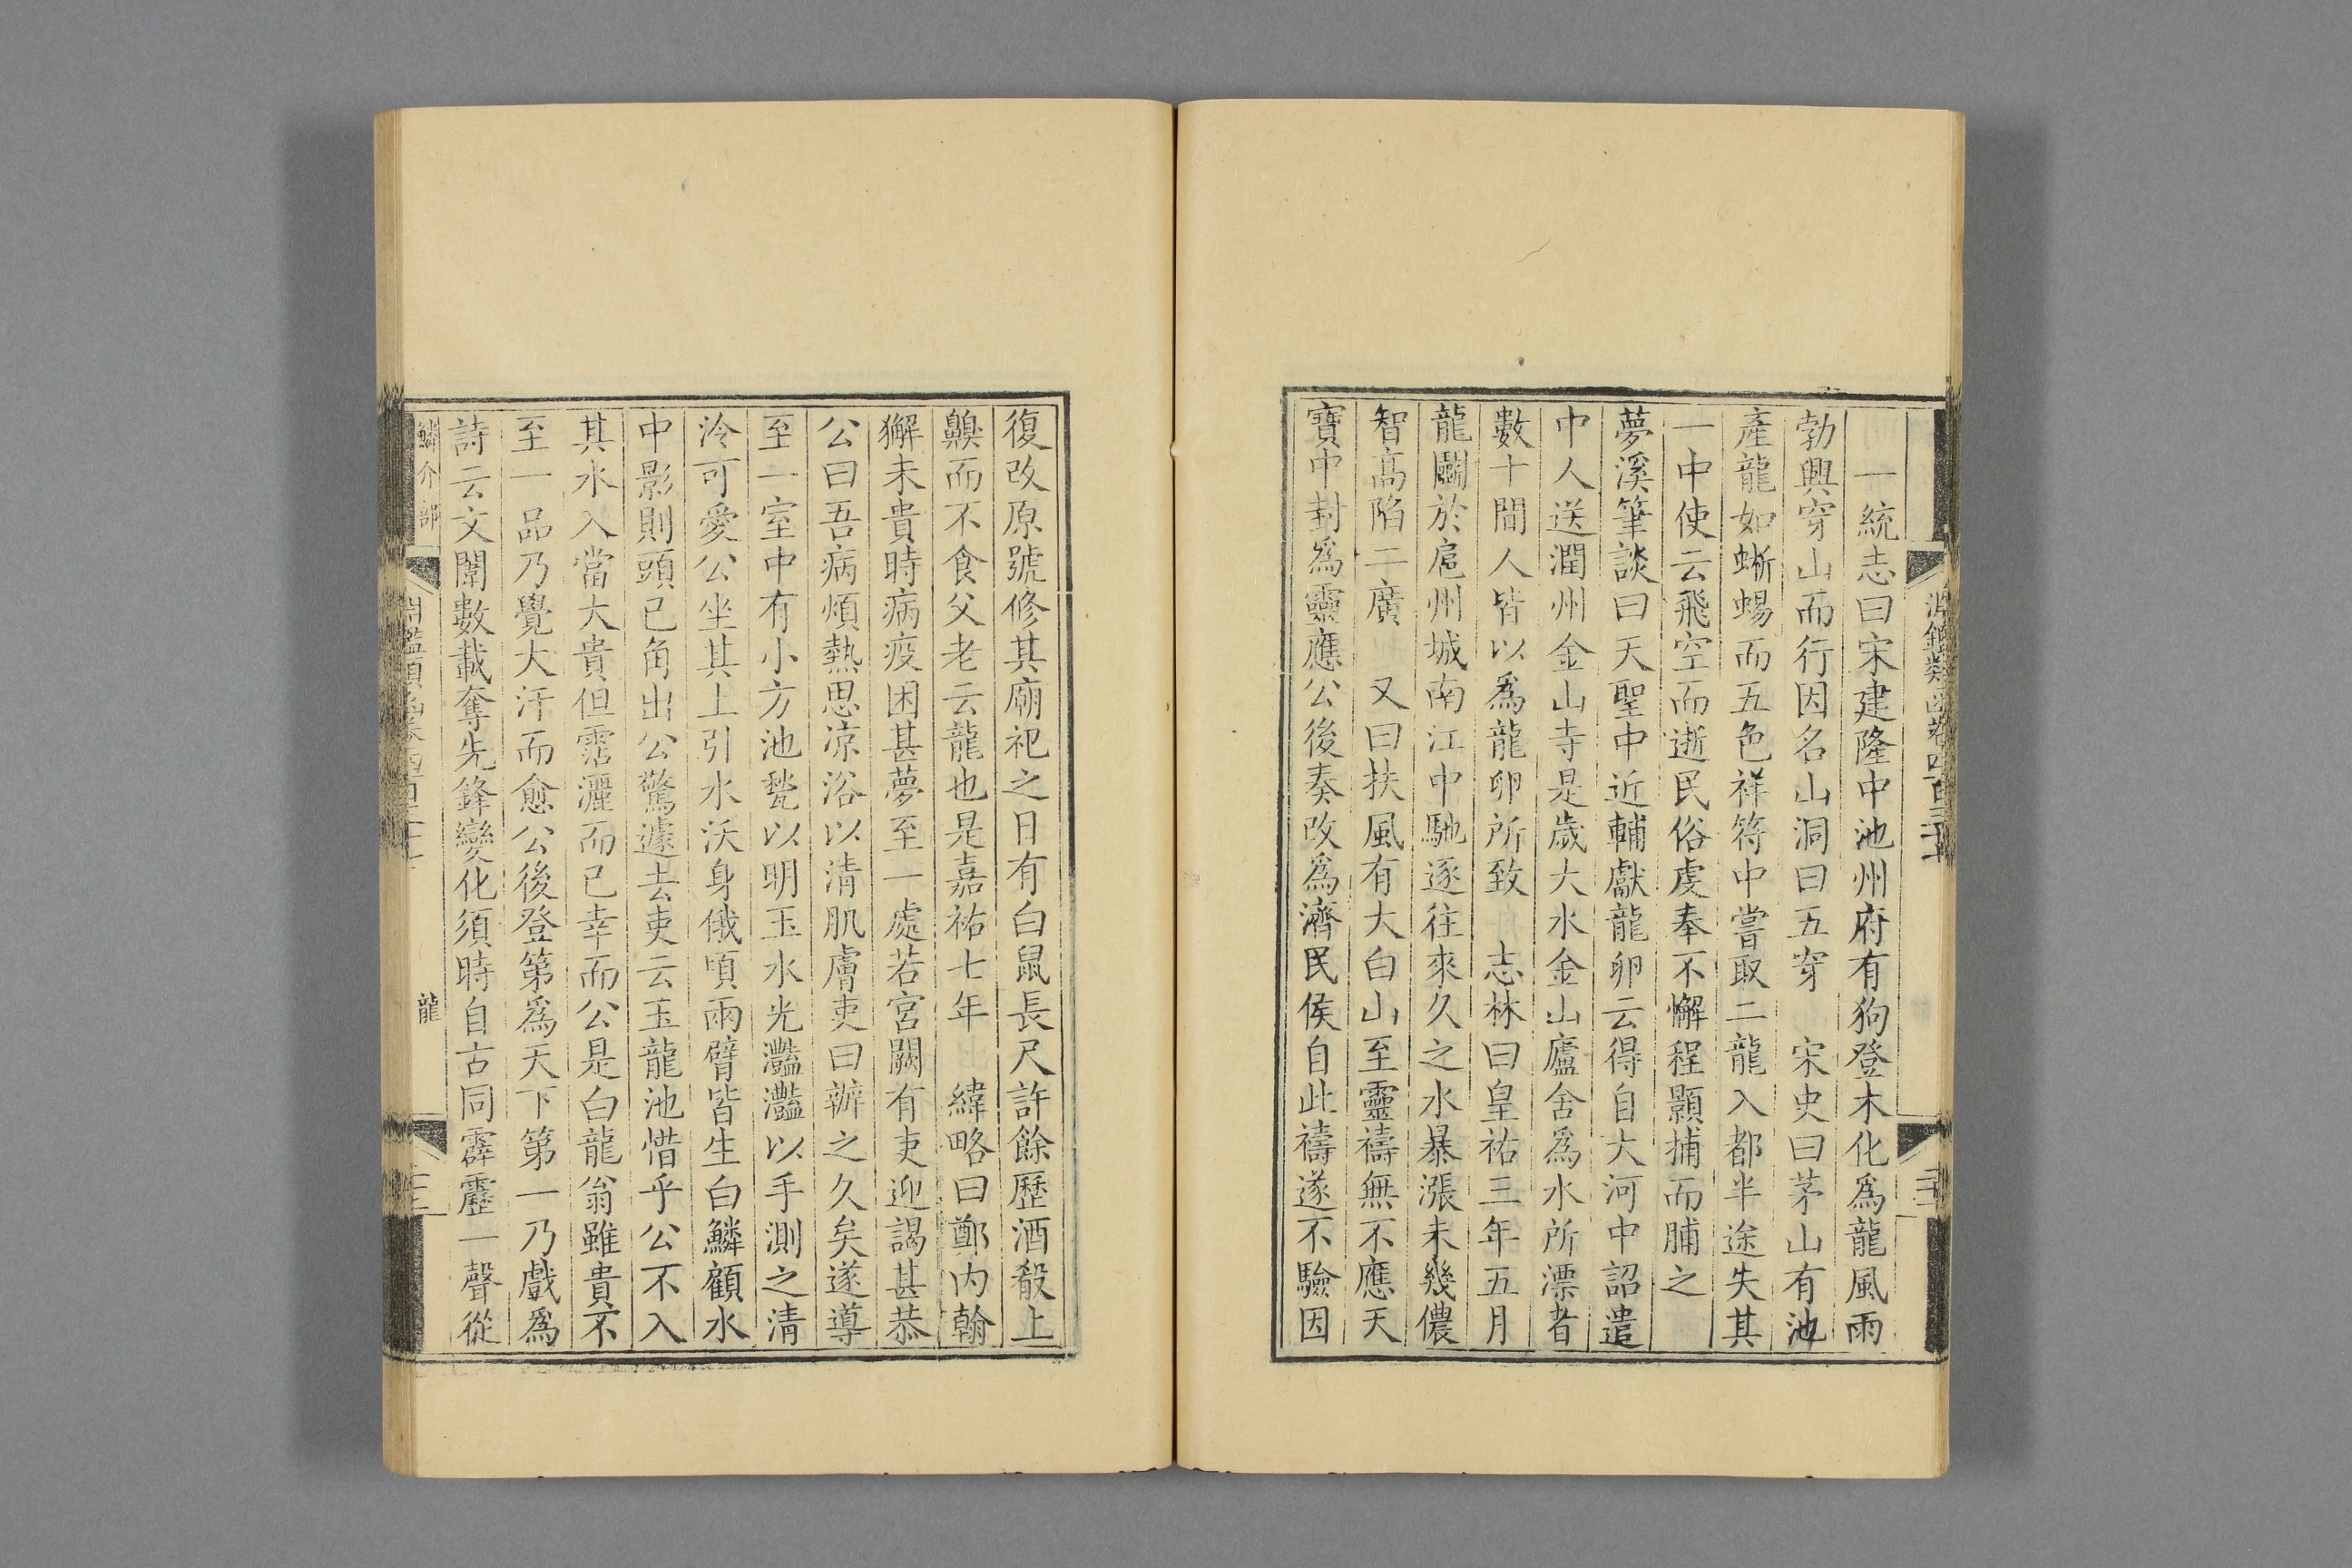 淵鑑類函卷四百三十七
一統志曰宋建隆中池州府有狗登木化爲龍風雨
勃興穿山而行因名山洞曰五穿 宋史曰茅山有池
產龍如蜥蜴而五色祥符中嘗取二龍入都半途失其
一中使云飛空而逝民俗虔奉不懈程顥捕而脯之
夢溪筆談曰天聖中近輔獻龍卵云得自大河中詔遣
中人送潤州金山寺是歲大水金山廬舍爲水所漂者
數十間人皆以爲龍卵所致 志林曰皇祐三年五月
龍鬭於邕州城南江中馳逐往來久之水暴漲未幾儂
智高陷二廣 又曰扶風有大白山至靈禱無不應天
寶中封爲靈應公後奏改爲濟民侯自此禱遂不驗因
復改原號修其廟祀之日有白鼠長尺許餘歷酒殽上
齅而不食父老云龍也是嘉祐七年 緯略曰鄭內翰
獬未貴時病疫困甚夢至一處若宮闕有吏迎謁甚恭
公曰吾病煩熱思凉浴以清肌膚吏曰辦之久矣遂導
至一室中有小方池甃以明玉水光灩灩以手測之清
泠可愛公坐其上引水沃身俄頃兩臂皆生白鱗顧水
中影則頭已角出公驚遽去吏云玉龍池惜乎公不入
其水入當大貴但霑灑而已幸而公是白龍翁雖貴不
至一品乃覺大汗而愈公後登第爲天下第一乃戲爲
詩云文闈數載奪先鋒變化須時自古同霹靂一聲從
鱗介部
龍